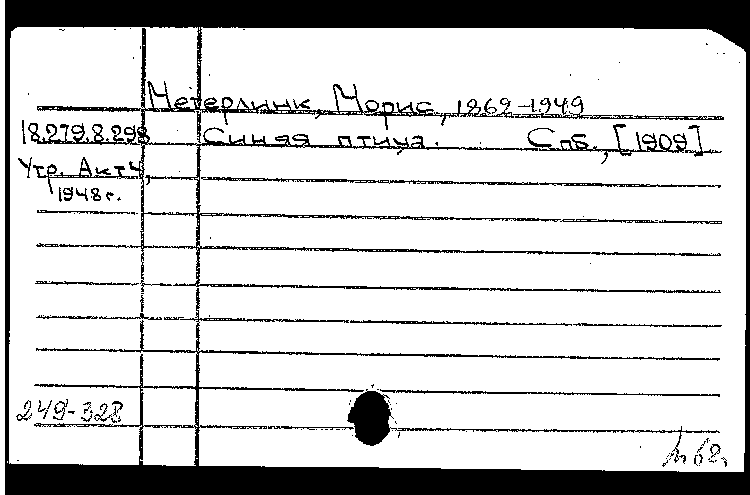 Метерлинк, Морис, 1862-1949
18.279.8.298 Синяя птица. Спб., [1909]
Утр. Акт 4,
1948 г.
249-328
62